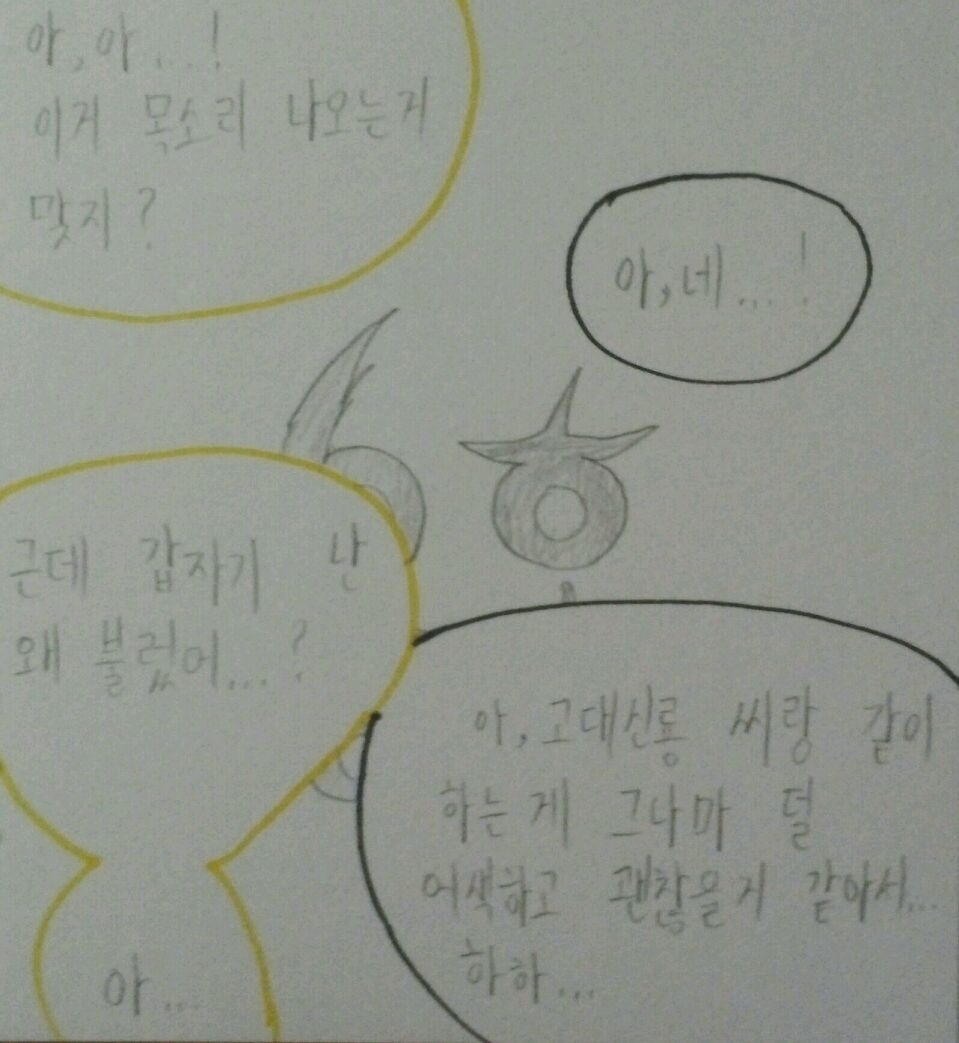 아,아...!
이거 목소리 나오는거
맞지?
아,네...!
근데 갑자기 난
왜 불렀어...?
아,고대신룡 씨랑 같이
하는게 그나마 덜
어색하고 괜찮을지 같아서...
하하...
아...